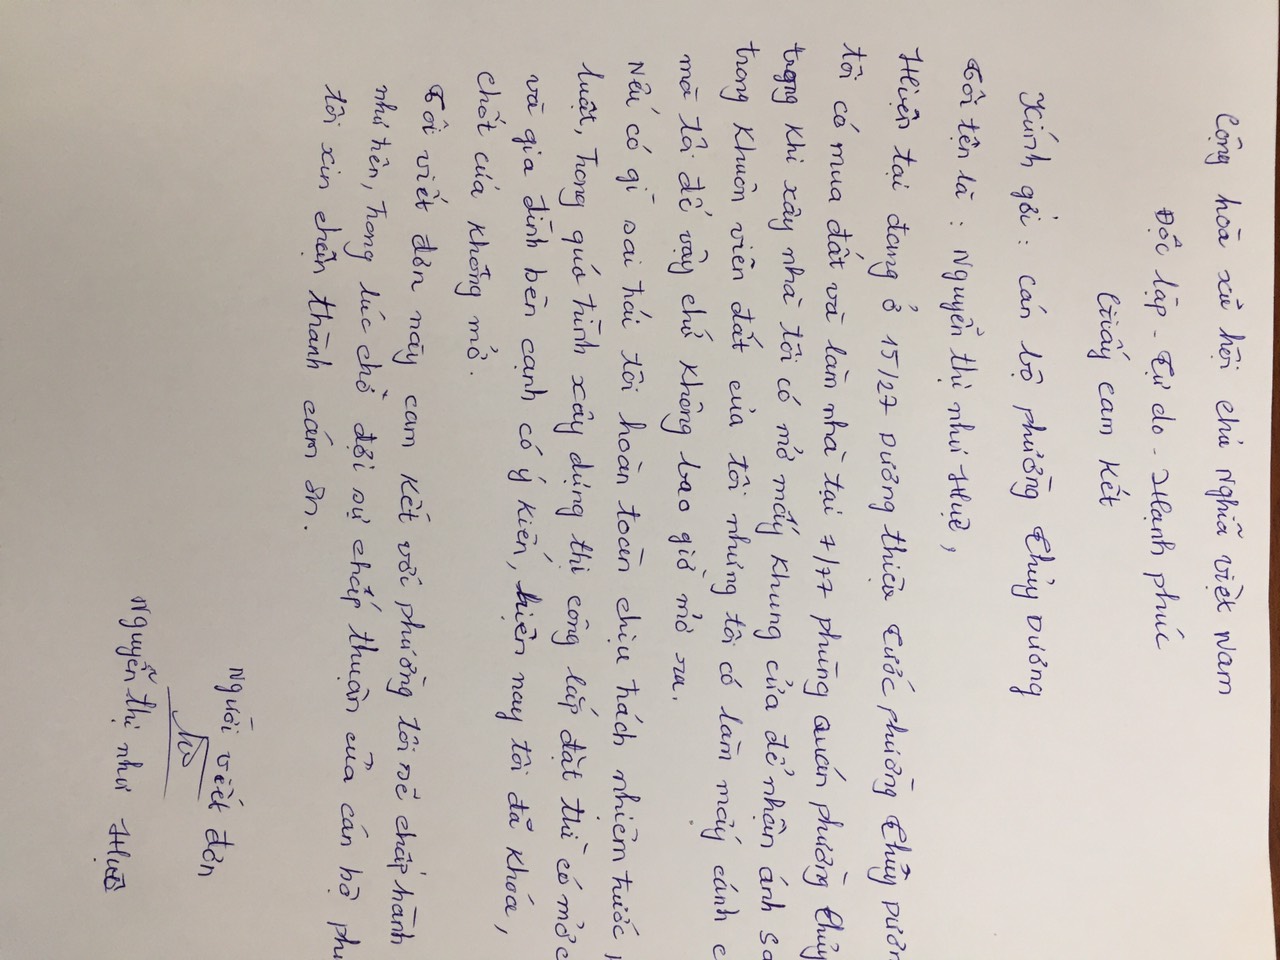 Cộng hòa xã hội chủ Nghĩa việt Nam
Độc lập - Tự do - Hạnh phúc
Giấy cam kết
Kính gởi : cán bộ phường Thủy Dương
Tôi tên là : Nguyễn thị như Huệ,
Hiện tại đang ở 15/27 Dương thiệu Tước phường Thủy Dươn
tôi có mua đất và làm nhà tại 7/77 phùng Quán phường Thủy
trong khi xây nhà tôi có mở mấy khung cửa để nhận ánh sá
trong khuôn viên đất của tôi nhưng tôi có làm mấy cánh c
mà tôi để vậy chứ không bao giờ mở ra.
Nếu có gì sai trái tôi hoàn toàn chịu trách nhiệm trước
luật, trong quá trình xây dựng thi công lắp đặt thì có mở c
và gia đình bên cạnh có ý kiến, hiện nay tôi đã khóa,
chốt cửa không mở.
Tôi viết đơn này cam kết với phường tôi sẽ chấp hành
như trên, trong lúc chờ đợi sự chấp thuận của cán bộ phư
tôi xin chân thành cám ơn.
Người viết đơn
Nguyễn thị như Huệ